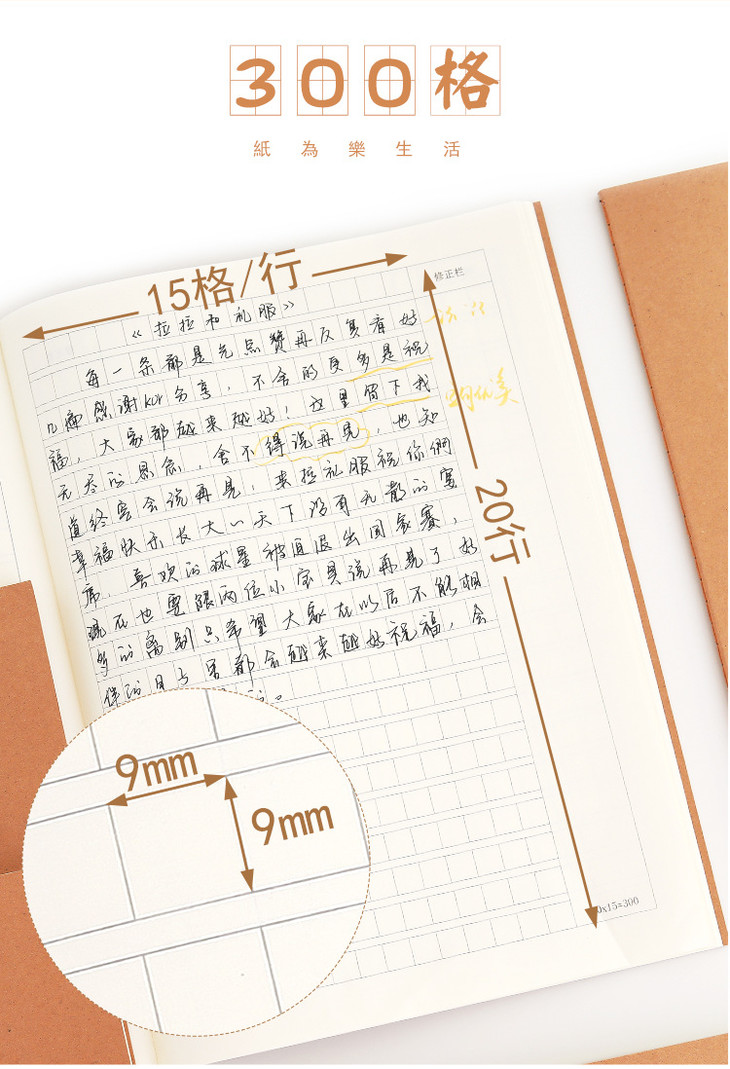 300格
紙為樂生活
15格/行
修正栏
《拉拉和礼服》
每一条都是先点赞再反复看好
几遍感谢KDY分享，不舍的更多是祝
福，大家都越来越好！这里留下我
无尽的思念，舍不得说再见，也知
道终究会说再见，来拉礼服祝你們
幸福快乐长大一天下没有不散的宴
席，喜欢的球星被迫退出国家赛，
现在也要跟两位小宝贝说再见了好
多的离别只希望大家在以后不能相
伴的日子里都会越来越好祝福，会
20行
9mm
9mm
x15=300